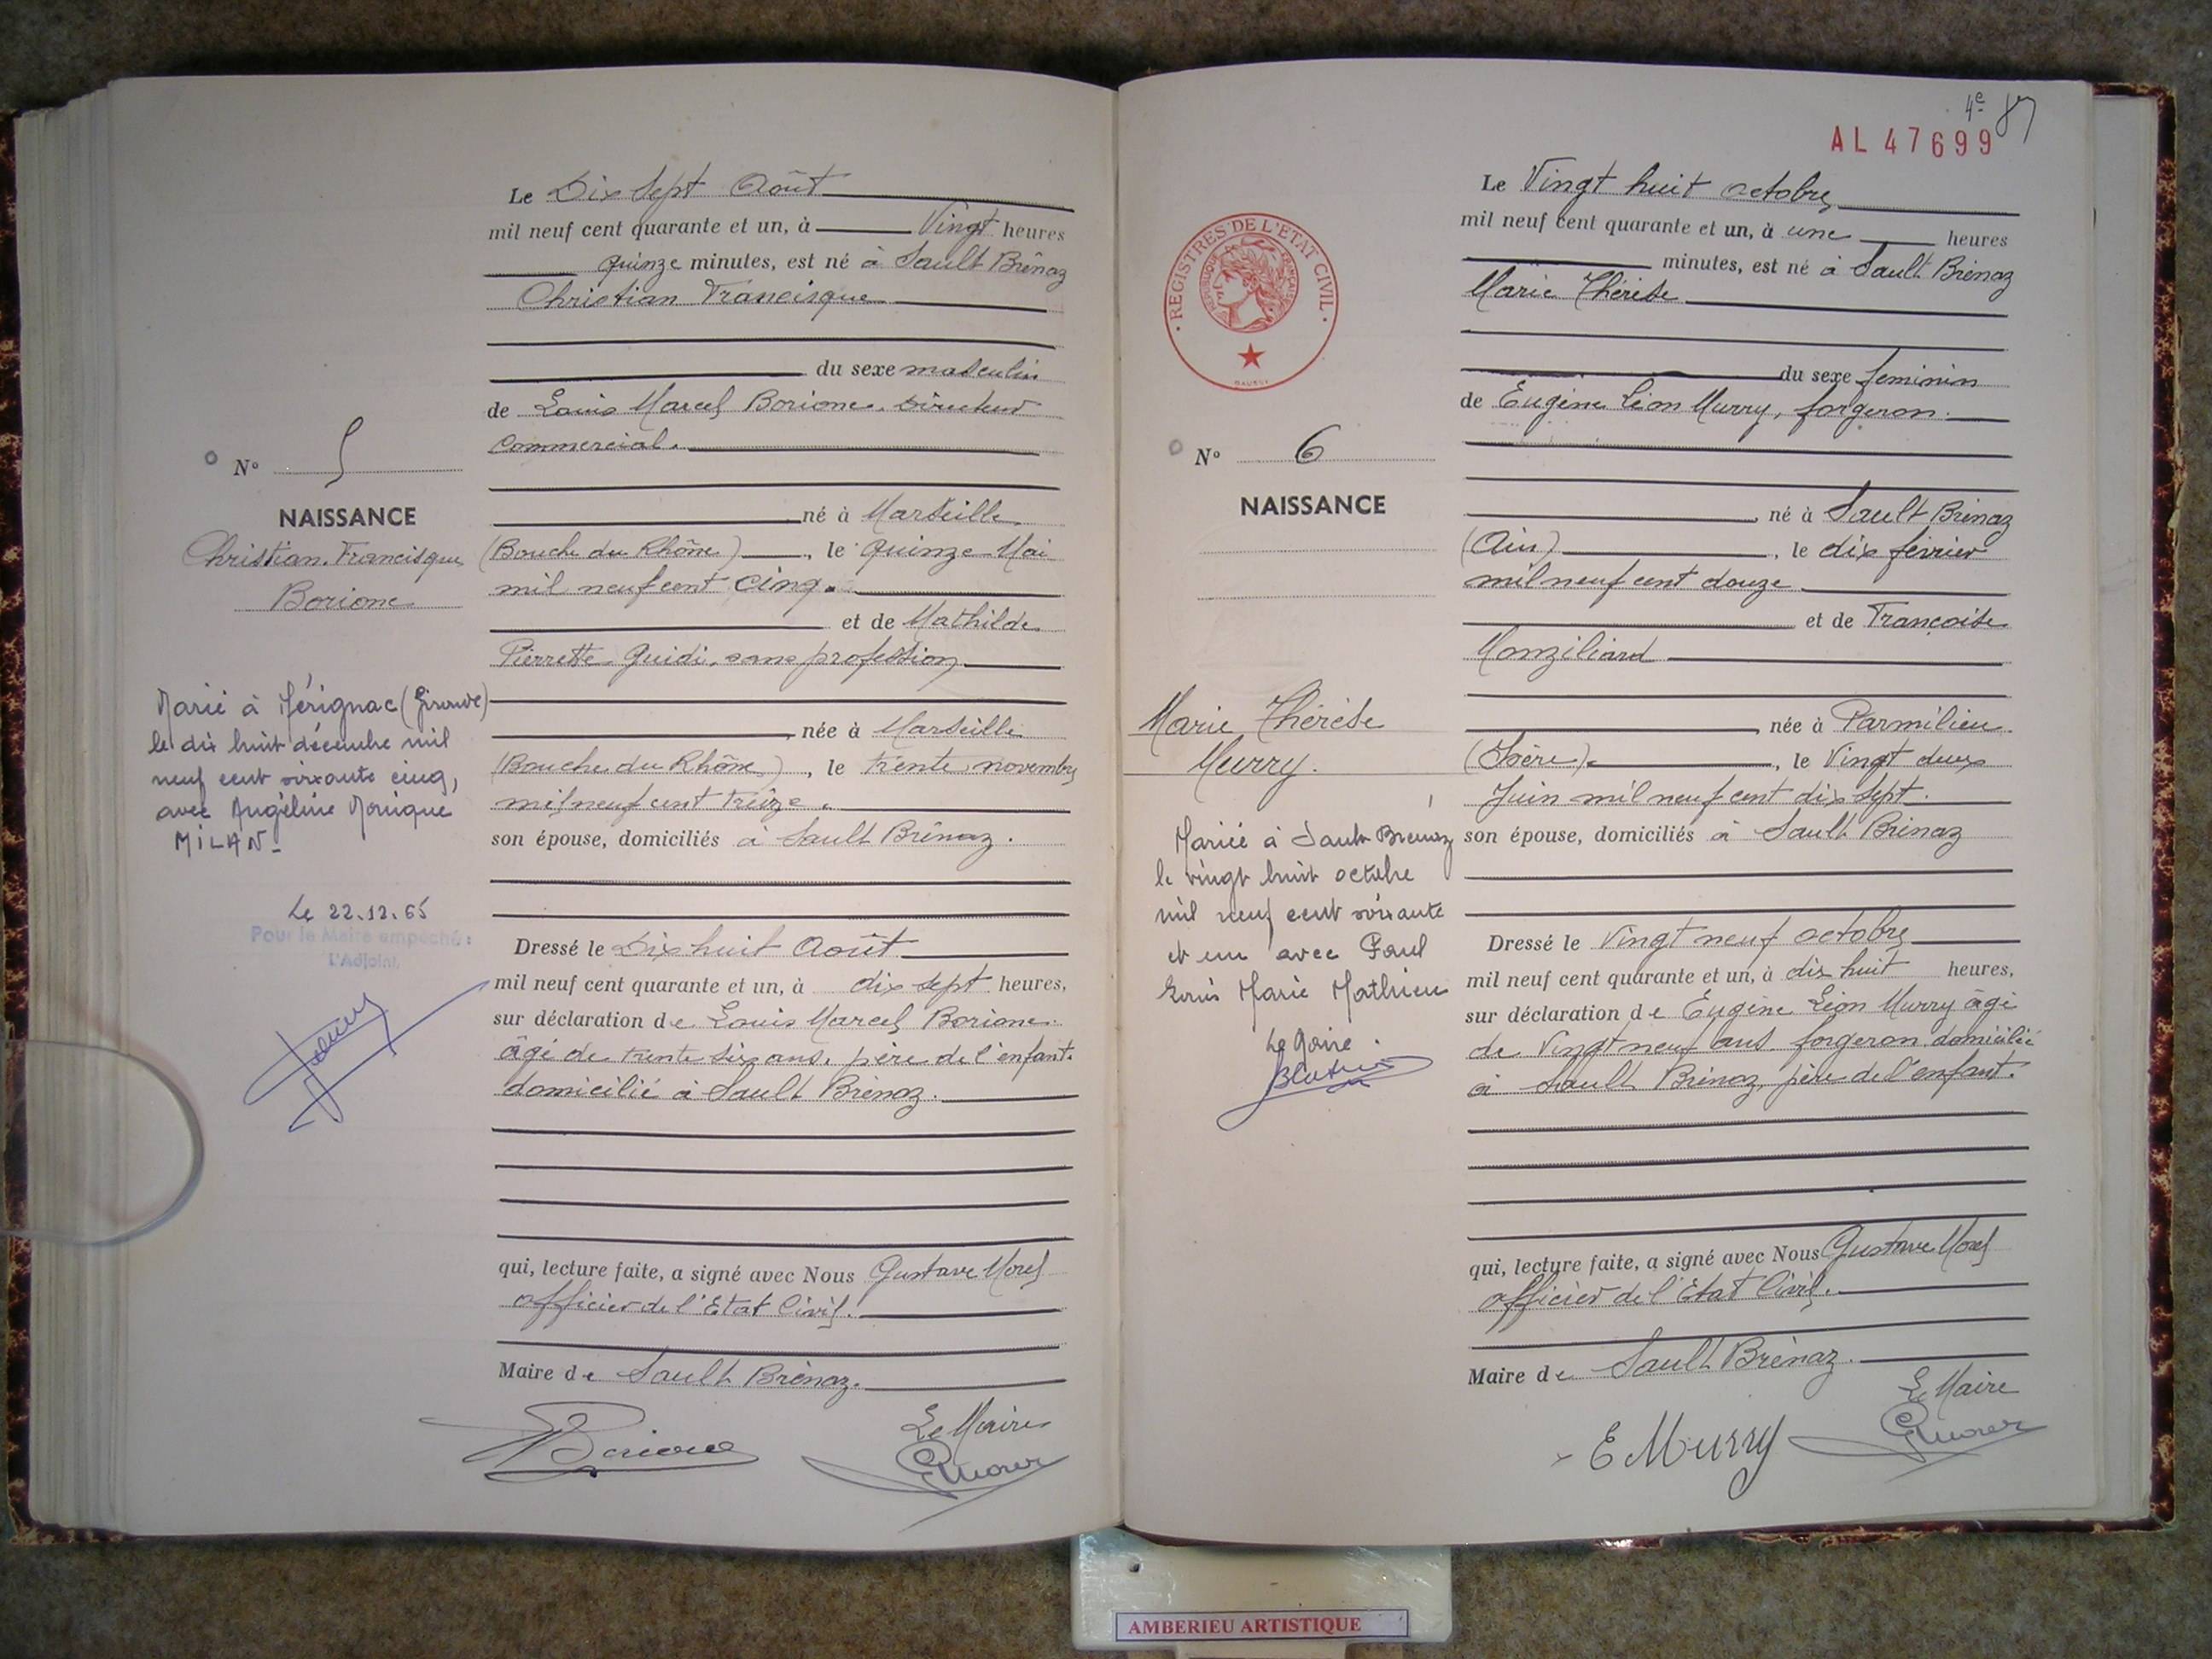 Le Dix Sept Août
mil neuf cent quarante et un, à Vingt heures
quinze minutes, est né à Sault Brénaz
Christian Francisque
du sexe masculin
de Louis Marcel Borione. Directeur
commercial.
N° 5
NAISSANCE
Christian. Francisque
Borione
né à Marseille
(Bouche du Rhône), le quinze Mai
mil neuf cent cinq.
et de Mathilde
Pierrette Guidi, sans profession
née à Marseille
(Bouche du Rhône), le trente novembre
mil neuf cent treize.
son épouse, domiciliés à Sault Brénaz.
Marié à Mérignac (Gironde)
le dix huit décembre mil
neuf cent soixante cinq,
avec Angéline Monique
MILAN-
Le 22.12.65
Pour le Maire empêché :
L'Adjoint,
Dressé le Dix huit Août
mil neuf cent quarante et un, à dix sept heures,
sur déclaration de Louis Marcel Borione
âgé de trente six ans, père de l'enfant.
domicilié à Sault Brénaz.
qui, lecture faite, a signé avec Nous Gustave Morel
officier de l'Etat Civil.
Maire de Sault Brénaz.
Le Maire
Borione
GMorel
4e
AL 47699
REGISTRES DE L'ÉTAT CIVIL
RÉPUBLIQUE FRANÇAISE
Le Vingt huit octobre
mil neuf cent quarante et un, à une heures
minutes, est né à Sault Brénaz
Marie Thérèse
du sexe feminin
de Eugène Léon Murry, forgeron.
N° 6
NAISSANCE
né à Sault Brénaz
(Ain), le dix février
mil neuf cent douze
et de Françoise
Monziliard
née à Parmilieu.
(Isère), le Vingt deux
Juin mil neuf cent dix sept.
son épouse, domiciliés à Sault Brénaz
Marie Thérèse
Murry.
Mariée à Sault Brenaz
le vingt huit octobre
mil neuf cent soixante
et un avec Paul
Louis Marie Mathieu
Le Maire
Dressé le Vingt neuf octobre
mil neuf cent quarante et un, à dix huit heures,
sur déclaration de Eugène Léon Murry âgé
de Vingt neuf ans forgeron domicilié
à Sault Brénaz, père de l'enfant.
qui, lecture faite, a signé avec Nous Gustave Morel
officier de l'Etat Civil.
Maire de Sault Brénaz.
Le Maire
E Murry
GMorel
AMBERIEU ARTISTIQUE